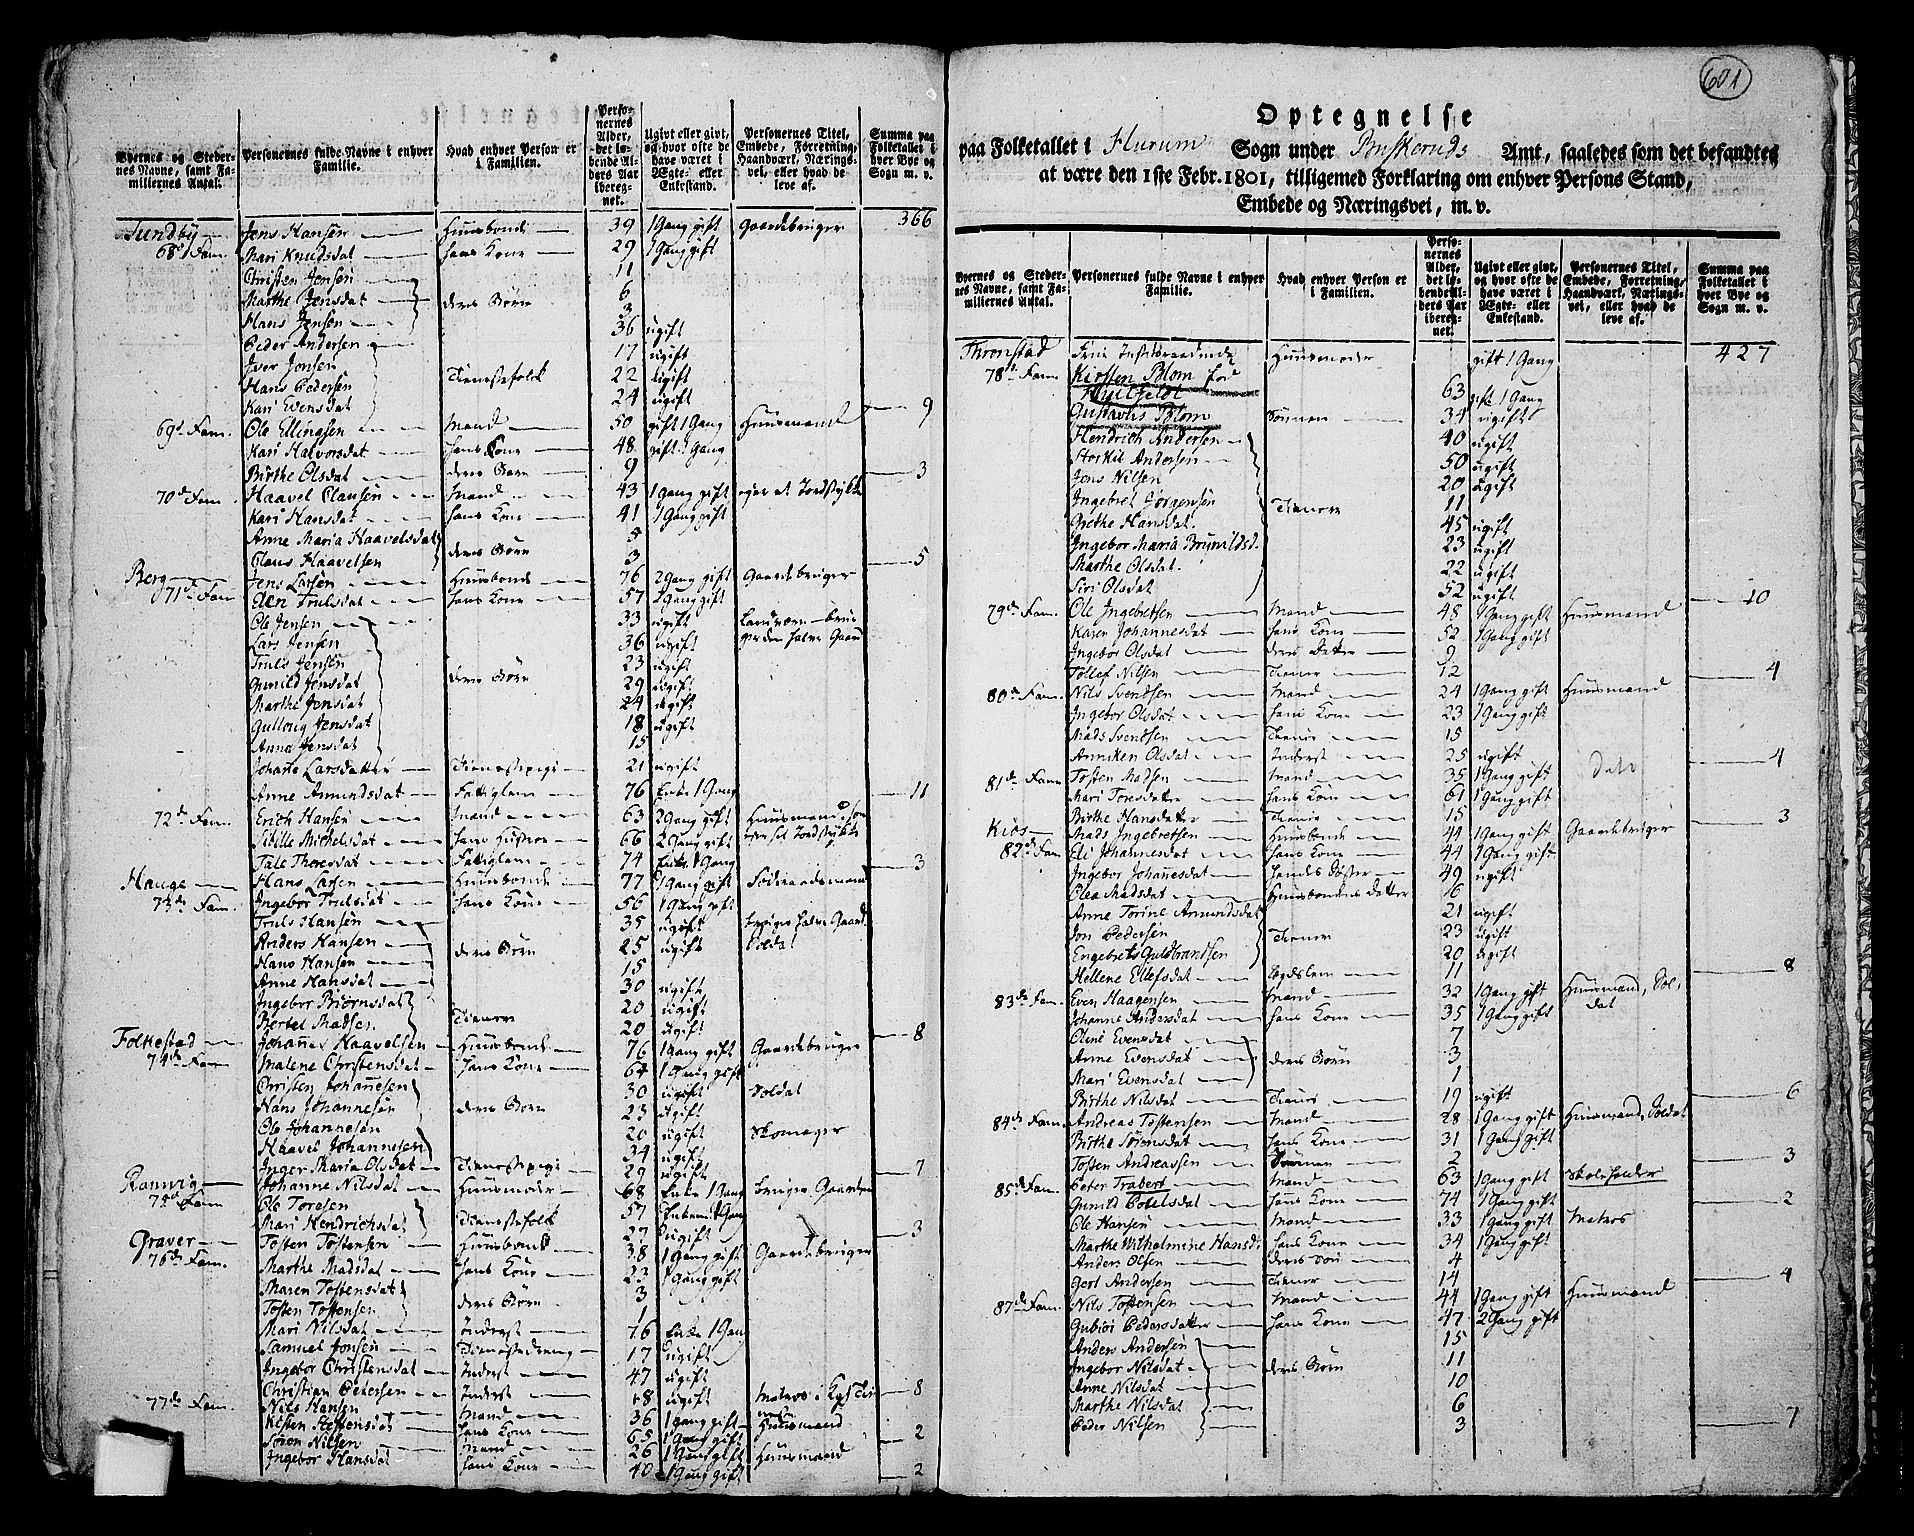 601
Byernes og Steder-
nes Navne, samt Fa-
miliernes Antal.
Personernes fulde Navne i enhver
Familie.
Hvad enhver Person er
i Familien.
Perso-
nernes
Alder,
det lø-
bende Al-
ders Aar
ibereg-
net.
Ugivt eller givt,
og hvor ofte de
have været i
Ægte- eller
Enkestand.
Personernes Titel,
Embede, Forretning,
Haandværk, Nærings-
vei, eller hvad de
leve af.
Summa paa
Folketallet i
hver Bye og
Sogn m. v.
366
Sundby Jens Hansen Huusbonde 39 1 Gang gift Gaardebruger
68de Fam. Mari Knudsdat hans Kone 29 1 Gang gift
Christen Jensen 11
Marthe Jensdat deres Børn 6
Hans Jensen 3
Peder Andersen 36 ugift
Iver Jonsen 17 ugift
Hans Pedersen Tienestefolk 22 ugift
Kari Evensdat 24 ugift 9
69de Fam. Ole Ellingsen Mand 50 gift 1 Gang Huusmand
Kari Halvorsdat hans Kone 48 gift 1 Gang
Birthe Olsdat deres Barn 9 3
70de Fam. Haavel Clausen Mand 43 1 Gang gift eger et Jordstykke
Kari Hansdat hans Kone 41 1 Gang gift
Anne Maria Haavelsdat deres Børn 5
Claus Haavelsen 3 5
Berg Jens Larsen Huusbonde 76 2 Gang gift Gaardebruger
71de Fam Elen Trulsdat hans Kone 57 1 Gang gift
Ole Jensen 33 ugift
Lars Jensen 36 ugift
Truls Jensen 23 ugift
Gunild Jensdat deres Børn 29 ugift
Marthe Jensdat 24 ugift
Gulloug Jensdat 18 ugift
Anne Jensdat 15
Johane Larsdatter Tienestepige 21 ugift
Anne Amundsdat Fattiglem 76 Enke 1 Gang 11
72de Fam. Erich Hansen Mand 63 2 Gang gift Huusmand
Sibille Michelsdat hans Hustroe 66 2 Gang gift
Tale Thoresdat Fattiglem 74 Enke 1 Gang 3
Hauge Hans Larsen Huusbonde 77 1 Gang gift
73de Fam. Ingebor Trulsdat hans Kone 56 1 Gang gift
Truls Hansen 35 ugift bruger halve Gaard
Anders Hansen deres Børn 25 ugift Soldat
Hans Hansen 15
Anne Hansdat 30 ugift
Ingebor Biørnsdat 20 ugift
Bertel Madsen Tienere 20 ugift 8
Folkestad Johannes Haavelsen Huusbonde 76 1 Gang gift Gaardebruger
74de Fam Malene Christensdat hans Kone 64 1 Gang gift
Christen Johannesen 30 ugift Soldat
Hans Johannesen deres Børn 23 ugift
Ole Johannesen 20 ugift Skomager
Haavel Johannesen 34 ugift
Inger Maria Olsdat Tienestepige 29 ugift 7
Johanne Nilsdat Huusmoder 68 Enke 1 Gang bruger Gaarden
75de Fam Ole Toresen 57
Mari Hendrichsdat Tienestefolk 27 ugift 3
Graver Tosten Tostensen Huusbonde 38 1 Gang gift Gaardebruger
76de Fam. Marthe Madsdat hans Kone 23 1 Gang gift
Maren Tostensdat 3
Tosten Tostensen deres Børn 1
Mari Nilsdat Inderst 76 Enke 1 Gang
Samuel Jonsen Tienestedreng 17 ugift
Ingebor Christensdat Inderst 47 ugift
Christian Petersen Inderst 18 ugift 8
77de Fam. Nils Hansen Mand 36 1 Gang gift Huusmand
hans Kone 65 1 Gang gift 2
Søren Nilsen Mand 26 1 Gang gift Huusmand
Ingebor Hansdat hans Kone 40 1 Gang gift 2
Optegnelse
paa Folketallet i Hurum Sogn under Buskeruds Amt, saaledes som det befandtes
at være den 1ste Febr. 1801, tilligemed Forklaring om enhver Persons Stand,
Embede og Næringsvei, m. v.
Byernes og Steder-
nes Navne, samt Fa-
miliernes Antal.
Personernes fulde Navne i enhver
Familie.
Hvad enhver Person er
i Familien.
Perso-
nernes
Alder,
det lø-
bende Al-
ders Aar
ibereg-
net.
Ugivt eller givt,
og hvor ofte de
have været i
Ægte- eller
Enkestand.
Personernes Titel,
Embede, Forretning,
Haandværk, Nærings-
vei, eller hvad de
leve af.
Summa paa
Folketallet i
hver Bye og
Sogn m. v.
Thronstad Huusmoder gift 1 Gang 427
78de Fam. Kirsten Blom fød
Huitfeldt 63 gift 1 Gang
Gustavus Blom Sønnen 34 ugift
Hendrich Andersen 40 ugift
Andersen 50 ugift
Jens Nilsen 20 ugift
Ingebret Jørgensen Tienere 11
Grethe Hansdat. 45 ugift
Ingebor Maria 23 ugift
Marthe Olsdat. 22 ugift
Siri Olsdat 52 ugift 10
79de Fam. Ole Ingebretsen Mand 48 1 Gang gift Huusmand
Karen Johannesdat hans Kone 52 1 Gang gift
Ingebor Olsdat deres Datter 9
Tollef Nilsen Tiener 12 4
80de Fam. Nils Svendsen Mand 24 1 Gang gift Huusmand
Ingebor Olsdat hans Kone 23 1 Gang gift
Mads Svendsen Tiener 15
Anniken Olsdat Inderst 25 ugift 4
81de Fam Tosten Madsen Mand 35 1 Gang gift dito
Mari Toresdatter hans Kone 61 1 Gang gift
Birthe Hansdatter Tiener 15 3
Kiøs Mads Ingebretsen Huusbonde 44 1 Gang gift Gaardebruger
82de Fam Eli Johannesdat hans Kone 44 1 Gang gift
Ingebor Johannesdat Søster 49 ugift
Olea Madsdat Huusbondens Datter 6
Anne Torine Amundsdat 21 ugift
Jon Pedersen Tienere 23 ugift
Engebret Guldbrandsen 20 ugift
Hellene Ellefsdat Legdslem 11 8
83de Fam. Even Haagensen Mand 32 1 Gang gift Huusmand, Sol,
Johanne Andersdat hans Kone 35 1 Gang gift dat
Oline Evensdat 7
Anne Evensdat deres Børn 3
Mari Evensdat 1
Birthe Nilsdat Tiener 19 ugift 6
84de Fam. Andreas Tostensen Mand 28 1 Gang gift Huusmand, Soldat
Birthe Sørensdat hans Kone 31 1 Gang gift
Tosten Andreassen Sønnen 2 3
85de Fam. Peter Trabert Mand 63 1 Gang gift Skoleholder
Gunild hans Kone 74 1 Gang gift 2
Ole Hansen Mand 33 1 Gang gift Matros
Marthe Wilhelmine Hansd: hans Kone 34 1 Gang gift
Anders Olsen deres Søn 4
Gert Andersen Tiener 14 4
87de Fam. Nils Tostensen Mand 44 1 Gang gift Huusmand
Gubiør Pedersdatter hans Kone 47 2 Gang gift
Anders Andersen 15
Ingebor Nilsdat deres Børn 11
Anne Nilsdat 10
Marthe Nilsdat 6
Peder Nilsen 3 7